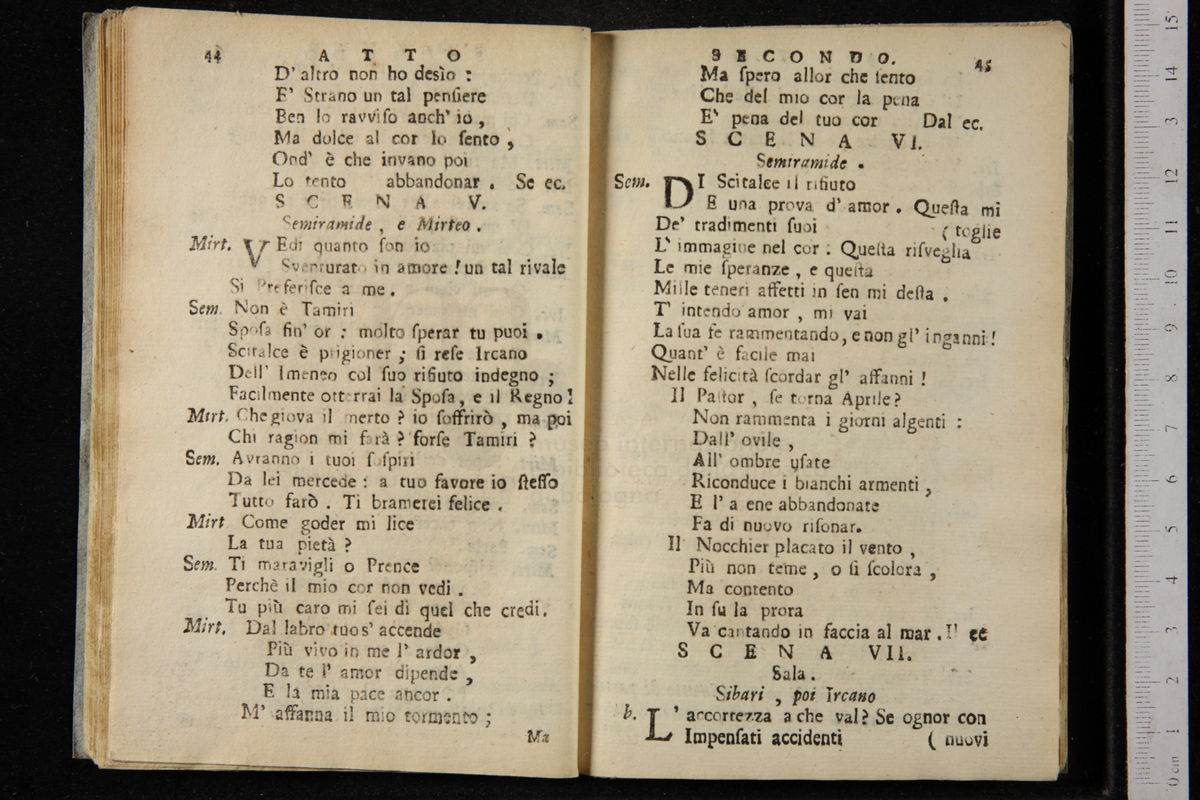 44 A T T O
D' altro non ho desìo :
E' Strano un tal penſiere
Ben lo ravviſo anch' io ,
Ma dolce al cor lo ſento ,
Ond' è che invano poi
Lo tento abbandonar . Se ec.
S C E N A V.
Semiramide , e Mirteo .
Mirt. VEdi quanto ſon io
Sventurato in amore ! un tal rivale
Si Preferiſce a me .
Sem. Non è Tamiri
Spoſa fin' or : molto ſperar tu puoi .
Scitalce è prigioner ; ſi reſe Ircano
Dell' Imeneo col ſuo rifiuto indegno ;
Facilmente otterrai la Spoſa, e il Regno!
Mirt. Che giova il merto ? io ſoffrirò , ma poi
Chi ragion mi farà ? forſe Tamiri ?
Sem. Avranno i tuoi ſoſpiri
Da lei mercede : a tuo favore io ſteſſo
Tutto farò . Ti bramerei felice .
Mirt Come goder mi lice
La tua pietà ?
Sem. Ti maravigli o Prence
Perchè il mio cor non vedi .
Tu più caro mi ſei di quel che credi.
Mirt. Dal labro tuo s' accende
Più vivo in me l' ardor ,
Da te l' amor dipende ,
E la mia pace ancor .
M' affanna il mio tormento ;
Ma
S E C O N D O. 45
Ma ſpero allor che ſento
Che del mio cor la pena
E' pena del tuo cor Dal ec.
S C E N A VI.
Semiramide .
Sem. DI Scitalce il rifiuto
E una prova d' amor . Queſta mi
De' tradimenti ſuoi ( toglie
L' immagine nel cor : Queſta riſveglia
Le mie ſperanze , e queſta
Mille teneri affetti in ſen mi deſta .
T' intendo amor , mi vai
La ſua fe rammentando, e non gl' inganni !
Quant' è facile mai
Nelle felicità ſcordar gl' affanni !
Il Paſtor , ſe torna Aprile ?
Non rammenta i giorni algenti :
Dall' ovile ,
All' ombre uſate
Riconduce i bianchi armenti ,
E l' a ene abbandonate
Fa di nuovo riſonar.
Il Nocchier placato il vento ,
Più non teme , o ſi ſcolora ,
Ma contento
In ſu la prora
Va cantando in faccia al mar . Il ec
S C E N A VII.
Sala .
Sibari , poi Ircano
b. L' accortezza a che val? Se ognor con
Impenſati accidenti ( nuovi